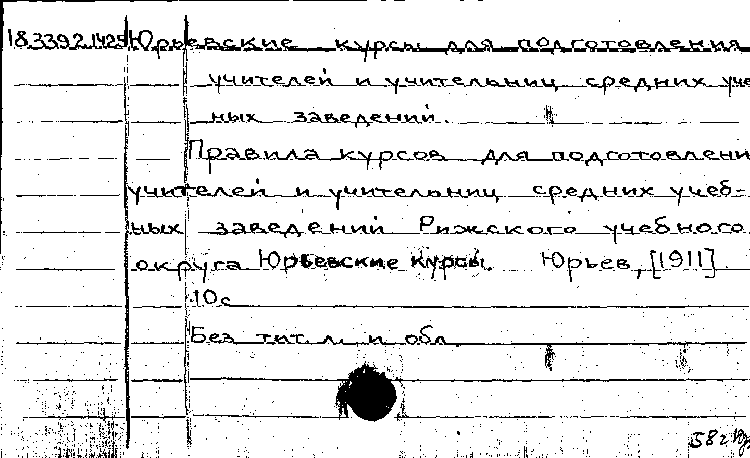 18.339.2.1425 Юрьевские курсы для подготовления
учителей и учительниц средних уче
ных заведений.
Правила курсов для подготовлени
учителей и учительниц средних учеб-
ных заведений Рижского учебного
округа Юрьевские курсы. Юрьев, [1911]
10с
Без тит. л. и обл.